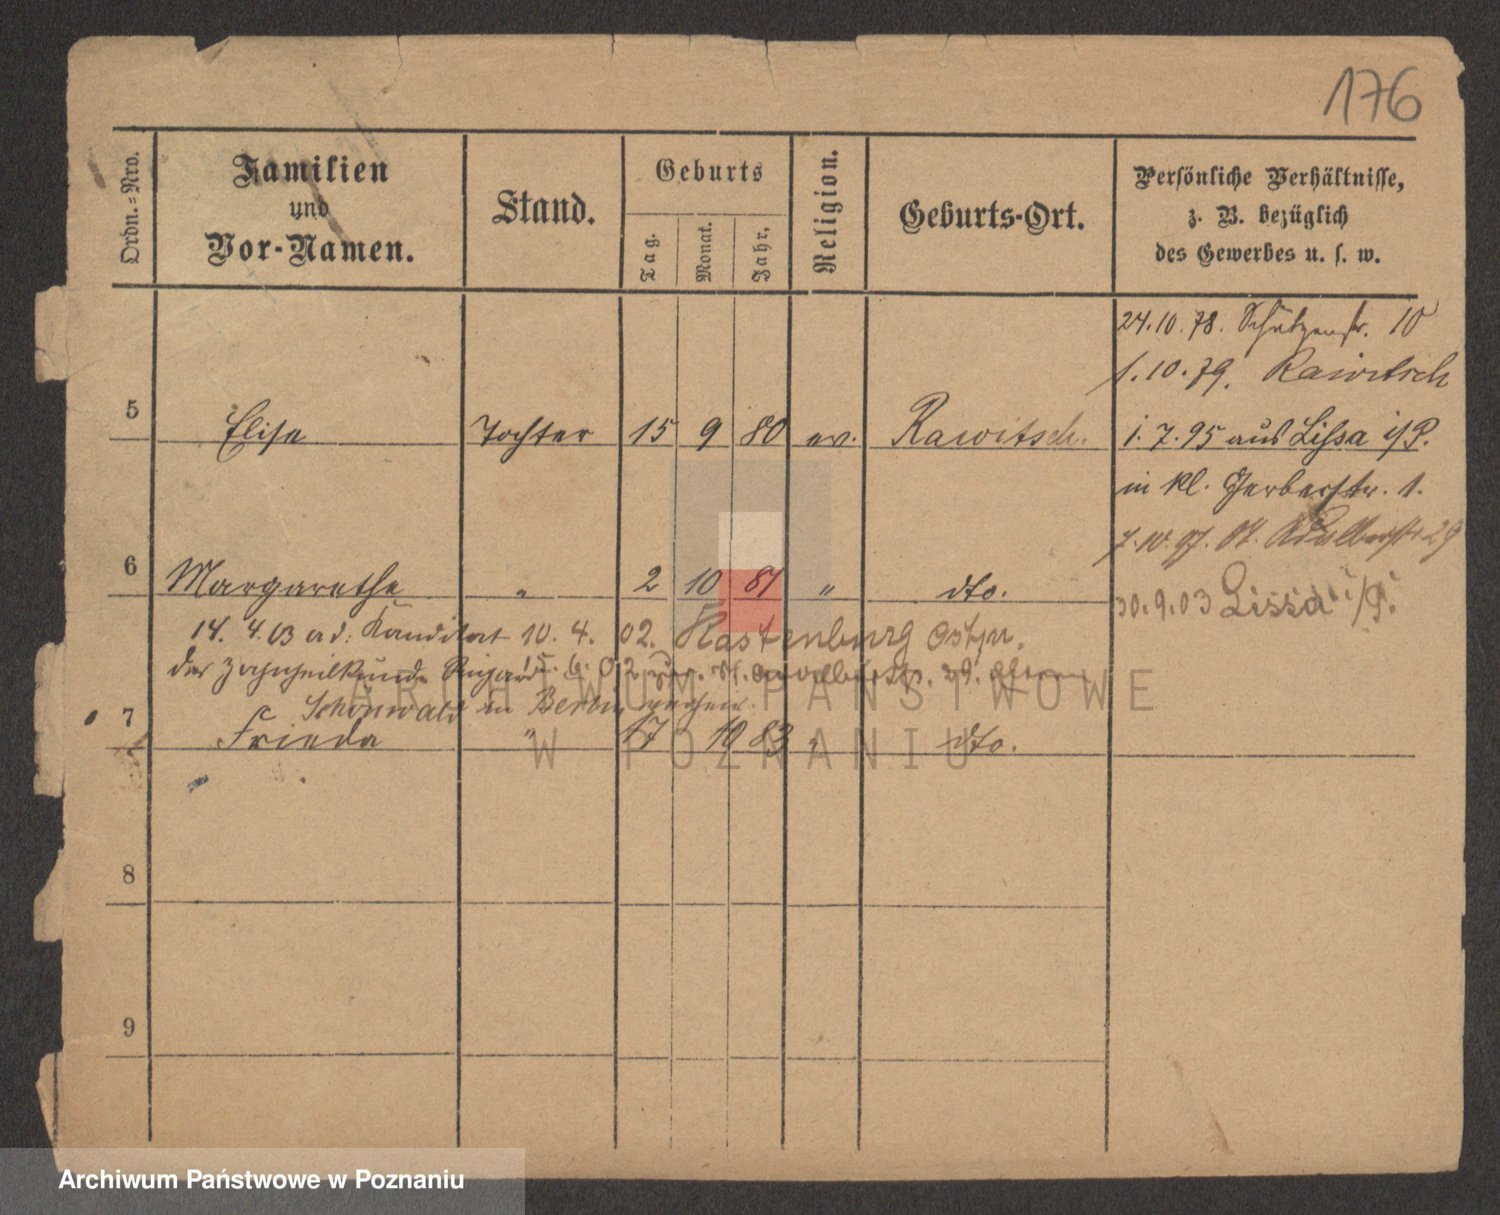 176
Ordn.=Nro.
Familien
und
Vor-Namen.
Stand.
Geburts
Tag.
Monat.
Jahr.
Religion.
Geburts-Ort.
Persönliche Verhältnisse,
z. B. bezüglich
des Gewerbes u. s. w.
24.10.78. Schützenstr. 10
1.10.79. Rawitsch
5 Elise Tochter 15 9 80 ev. Rawitsch. 1.7.95 aus Lissa i/P.
in kl. Gerberstr. 1.
7.10.97. St. Adalbertstr. 29
6 Margarethe " 2 10 81 " dto.
30.9.03 Lissa i/P.
14. 4.03 ad: Kanditat 10. 4. 02. Rastenburg Ostpr.
der Zahnheilkunde 15. 6. 02 St. Adalbertstr. 29.
Schönwald in Berlin
7 Frieda " 17 10 83 " dto.
8
9
ARCHIWUM PAŃSTWOWE
W POZNANIU
Archiwum Państwowe w Poznaniu